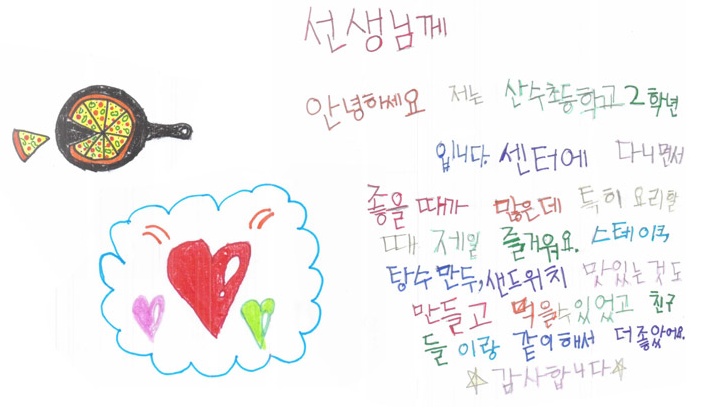 선생님께
안녕하세요 저는 산수초등학교 2학년
입니다. 센터에 다니면서
좋을 때가 많은데 특히 요리할
때 제일 즐거워요. 스테이크,
탕수만두, 샌드위치 맛있는 것도
만들고 먹을 수 있었고 친구
들이랑 같이 해서 더 좋았어요.
☆감사합니다☆